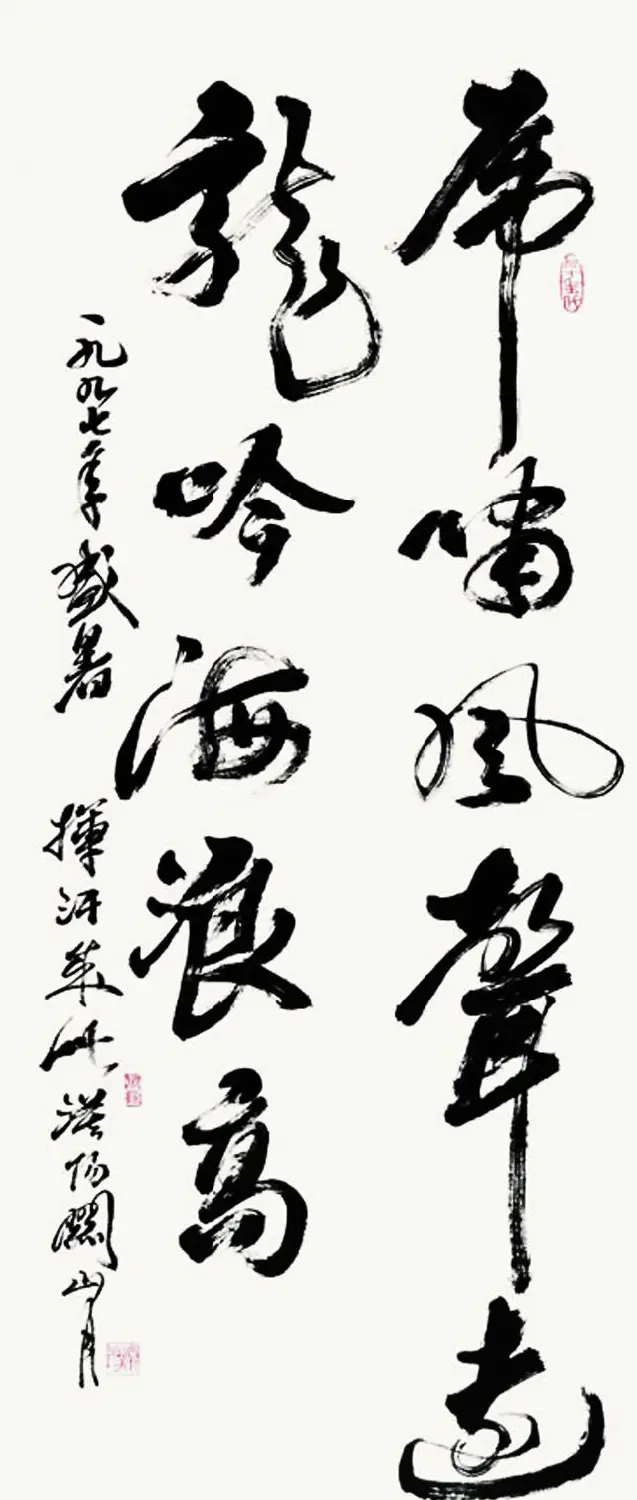 虎嘯風聲遠
龍吟海浪高
一九九七年盛暑 揮汗成此 漠陽關山月